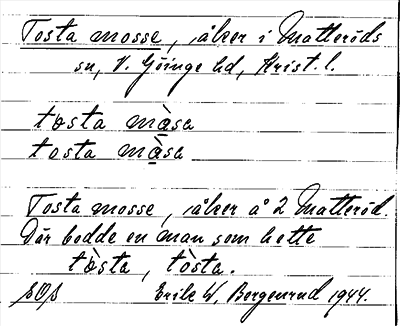 Tosta mosse, åker i Matteröds
sn, V. Göinge hd, Krist. l.
tosta mòsa
tosta màsa
Tosta mosse, åker å 2 Matteröd.
Där bodde en man som hette
tòsta, tòsta.
Erik W. Bergenrud 1944.